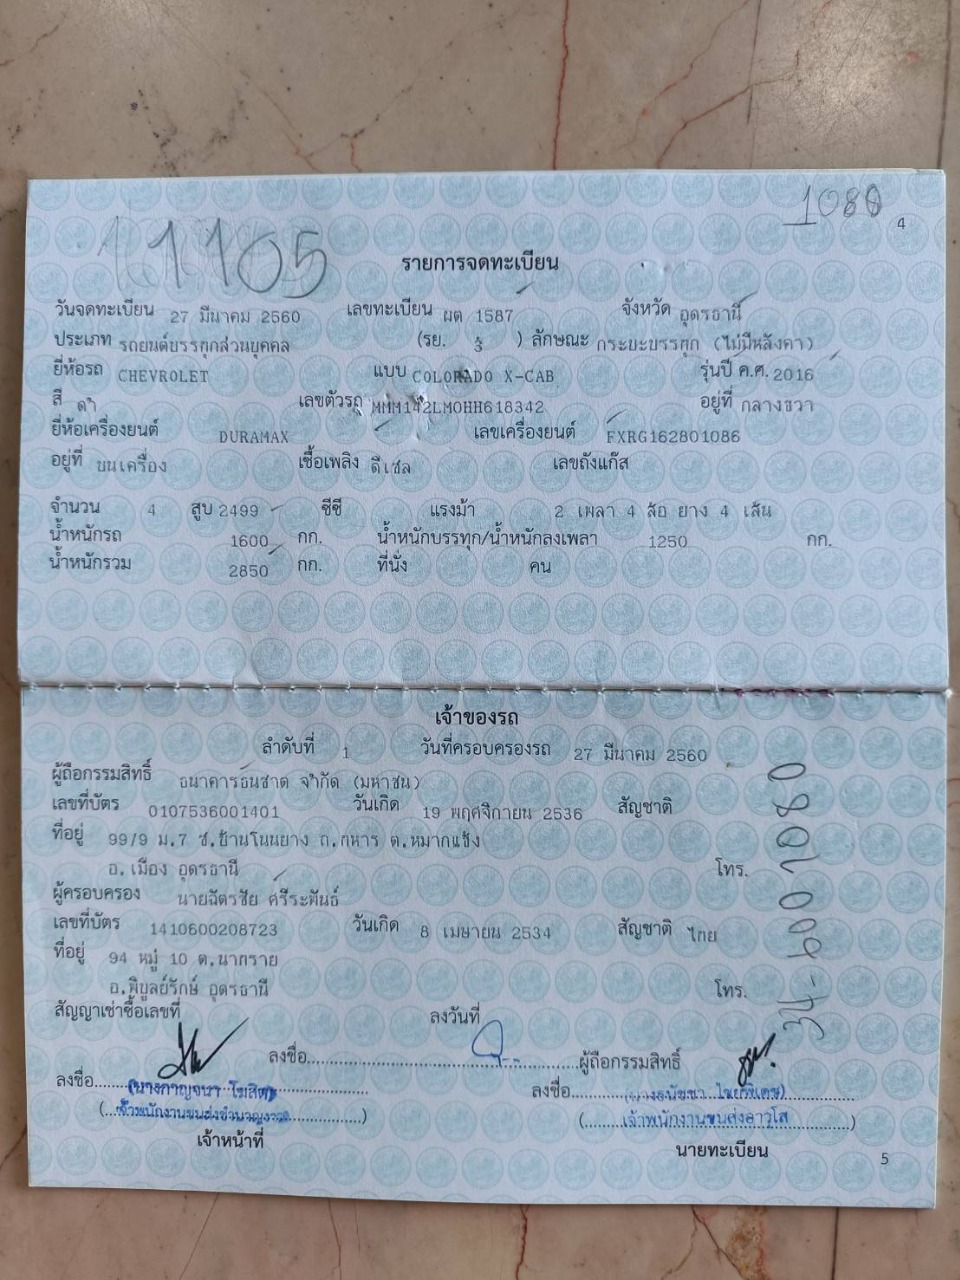 1105
1080
4
รายการจดทะเบียน
วันจดทะเบียน 27 มีนาคม 2560 เลขทะเบียน ผต 1587 จังหวัด อุดรธานี
ประเภท รถยนต์บรรทุกส่วนบุคคล (รย. 3 ) ลักษณะ กระบะบรรทุก (ไม่มีหลังคา)
ยี่ห้อรถ CHEVROLET แบบ COLORADO X-CAB รุ่นปี ค.ศ. 2016
สี ดำ เลขตัวรถ MMM142LM0HH618342 อยู่ที่ กลางขวา
ยี่ห้อเครื่องยนต์ DURAMAX เลขเครื่องยนต์ FXRG162801086
อยู่ที่ บนเครื่อง เชื้อเพลิง ดีเซล เลขถังแก๊ส
จำนวน 4 สูบ 2499 ซีซี แรงม้า 2 เพลา 4 ล้อ ยาง 4 เส้น
น้ำหนักรถ 1600 กก. น้ำหนักบรรทุก/น้ำหนักลงเพลา 1250 กก.
น้ำหนักรวม 2850 กก. ที่นั่ง คน
เจ้าของรถ
ลำดับที่ 1 วันที่ครอบครองรถ 27 มีนาคม 2560
ผู้ถือกรรมสิทธิ์ ธนาคารธนชาต จำกัด (มหาชน)
เลขที่บัตร 0107536001401 วันเกิด 19 พฤศจิกายน 2536 สัญชาติ
ที่อยู่ 99/9 ม.7 ซ.บ้านโนนยาง ถ.ทหาร ต.หมากแข้ง
อ.เมือง อุดรธานี โทร.
ผู้ครอบครอง นายฉัตรชัย ศรีระพันธ์
เลขที่บัตร 1410600208723 วันเกิด 8 เมษายน 2534 สัญชาติ ไทย
ที่อยู่ 94 หมู่ 10 ต.นาทราย
อ.พิบูลย์รักษ์ อุดรธานี โทร.
สัญญาเช่าซื้อเลขที่ ลงวันที่
ลงชื่อ ผู้ถือกรรมสิทธิ์
ลงชื่อ ลงชื่อ
(นางกาญจนา โฆสิต)
เจ้าหน้าที่
เจ้าพนักงานขนส่งอาวุโส
นายทะเบียน
5